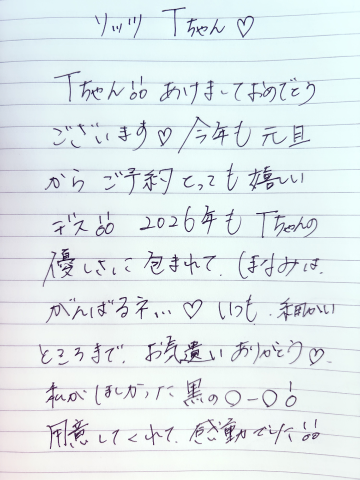 ソッツ Tちゃん♡
Tちゃん!! あけましておめでとう
ございます♡ 今年も 元旦
から ご予約 とっても 嬉しい
デス!! 2026年も Tちゃんの
優しさに 包まれて、ほなみは、
がんばるネ...♡ いつも、細かい
ところまで、お気遣い ありがとう♡
私が ほしかった 黒の○-○○
用意してくれて、感動でした!!